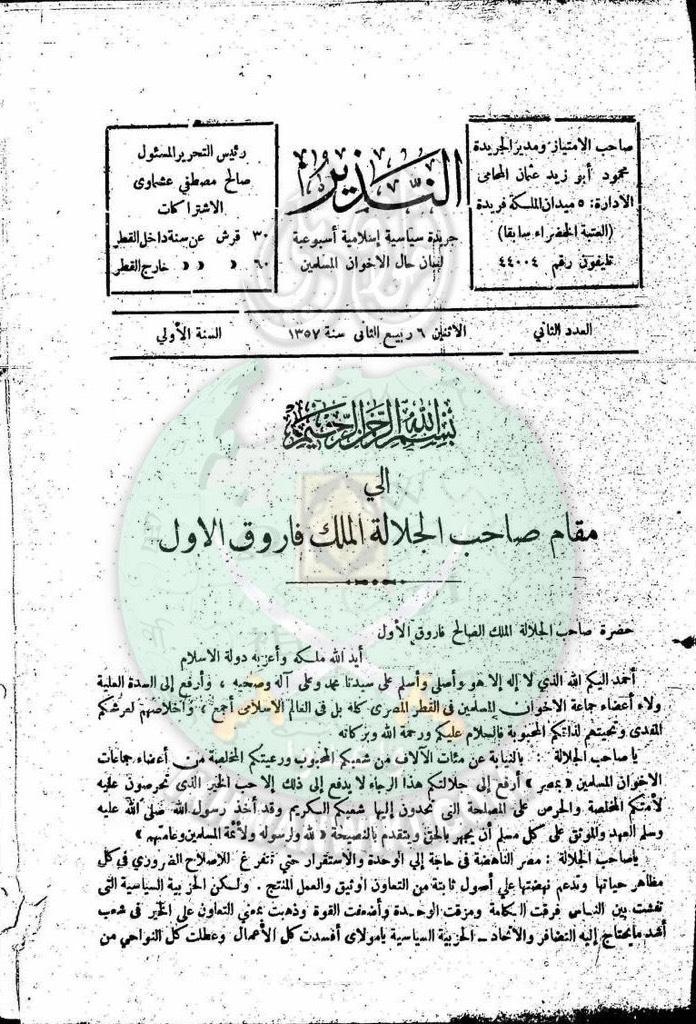 صاحب الامتياز ومدير الجريدة
محمود أبو زيد عثمان المحامى
الادارة: ٥ ميدان الملكة فريدة
(العتبة الخضراء سابقا)
تليفون رقم ٤٤٠٠٤
النذير
جريدة سياسية إسلامية أسبوعية
لسان حال الاخوان المسلمين
رئيس التحرير المسئول
صالح مصطفى عشماوى
الاشتراكات
٣٠ قرش عن سنة داخل القطر
٦٠ » » » خارج القطر
العدد الثاني
الاثنين ٦ ربيع الثانى سنة ١٣٥٧
السنة الأولي
بسم الله الرحمن الرحيم
الي
مقام صاحب الجلالة الملك فاروق الاول
حضرة صاحب الجلالة الملك الصالح فاروق الأول
أيد الله ملكه وأعز به دولة الاسلام
أحمد اليكم الله الذي لا إله إلا هو وأصلى وأسلم على سيدنا محمد وعلى آله وصحبه ، وأرفع إلى السدة العلية
ولاء أعضاء جماعة الاخوان المسلمين فى القطر المصرى كله بل فى العالم الاسلامى أجمع ، وأخلاصهم لعرشكم
المفدى وتحيتهم لذاتكم المحبوبة فالسلام عليكم ورحمة الله وبركاته
يا صاحب الجلالة : بالنيابة عن مئات الآلاف من شعبكم المحبوب ورعيتكم المخلصة من أعضاء جماعات
الاخوان المسلمين « بمصر » أرفع إلى جلالتكم هذا الرجاء لا يدفع إلى ذلك إلا حب الخير الذى تحرصون عليه
لأمتكم المخلصة والحرص على المصلحة التى تحدون إليها شعبكم الكريم وقد أخذ رسول الله صلى الله عليه
وسلم العهد والموثق على كل مسلم أن يجهر بالحق ويتقدم بالنصيحة « لله ولرسوله ولأئمة المسلمين وعامتهم »
ياصاحب الجلالة : مصر الناهضة فى حاجة إلى الوحدة والاستقرار حتى تتفرغ للإصلاح الضرورى فى كل
مظاهر حياتها وتدعم نهضتها على أصول ثابتة من التعاون الوثيق والعمل المنتج . ولكن الحزبية السياسية التى
تفشت بين الناس فرقت الكلمة ومزقت الوحدة وأضعفت القوة وذهبت بمعنى التعاون على الخير فى شعب
أشد مايحتاج إليه التضافر والاتحاد ــ الحزبية السياسية يامولاى أفسدت كل الأعمال وعطلت كل النواحي من